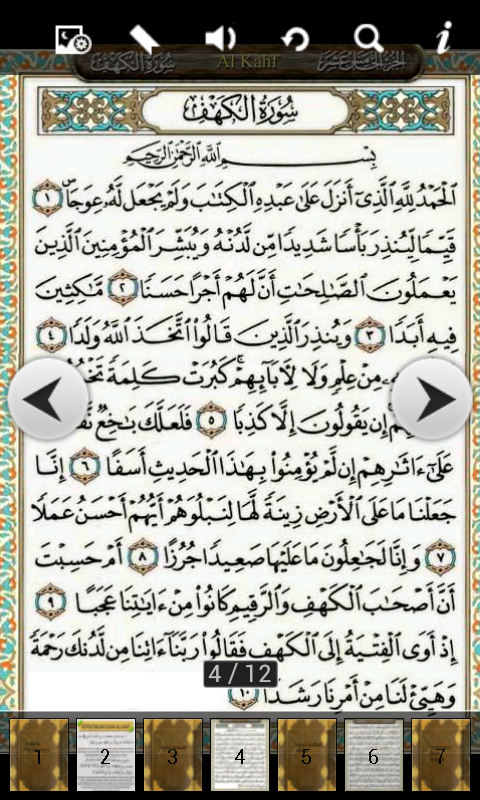 سُورَةُ الكَهْفِ
Al Kahf
الجُزْءُ الخَامِسَ عَشَرَ
سُورَةُ الكَهْفِ
بِسْمِ اللَّهِ الرَّحْمَٰنِ الرَّحِيمِ
الْحَمْدُ لِلَّهِ الَّذِي أَنزَلَ عَلَىٰ عَبْدِهِ الْكِتَٰبَ وَلَمْ يَجْعَل لَّهُ عِوَجًا ١
قَيِّمًا لِّيُنذِرَ بَأْسًا شَدِيدًا مِّن لَّدُنْهُ وَيُبَشِّرَ الْمُؤْمِنِينَ الَّذِينَ
يَعْمَلُونَ الصَّٰلِحَٰتِ أَنَّ لَهُمْ أَجْرًا حَسَنًا ٢ مَّٰكِثِينَ
فِيهِ أَبَدًا ٣ وَيُنذِرَ الَّذِينَ قَالُوا اتَّخَذَ اللَّهُ وَلَدًا ٤
مِنْ عِلْمٍ وَلَا لِآبَائِهِمْ ۚ كَبُرَتْ كَلِمَةً
إِن يَقُولُونَ إِلَّا كَذِبًا ٥ فَلَعَلَّكَ بَٰخِعٌ
عَلَىٰ ءَاثَٰرِهِمْ إِن لَّمْ يُؤْمِنُوا بِهَٰذَا الْحَدِيثِ أَسَفًا ٦ إِنَّا
جَعَلْنَا مَا عَلَى الْأَرْضِ زِينَةً لَّهَا لِنَبْلُوَهُمْ أَيُّهُمْ أَحْسَنُ عَمَلًا
٧ وَإِنَّا لَجَٰعِلُونَ مَا عَلَيْهَا صَعِيدًا جُرُزًا ٨ أَمْ حَسِبْتَ
أَنَّ أَصْحَٰبَ الْكَهْفِ وَالرَّقِيمِ كَانُوا مِنْ ءَايَٰتِنَا عَجَبًا ٩
إِذْ أَوَى الْفِتْيَةُ إِلَى الْكَهْفِ فَقَالُوا رَبَّنَا ءَاتِنَا مِن لَّدُنكَ رَحْمَةً
وَهَيِّئْ لَنَا مِنْ أَمْرِنَا رَشَدًا ١٠
4 / 12
1 2 3 4 5 6 7